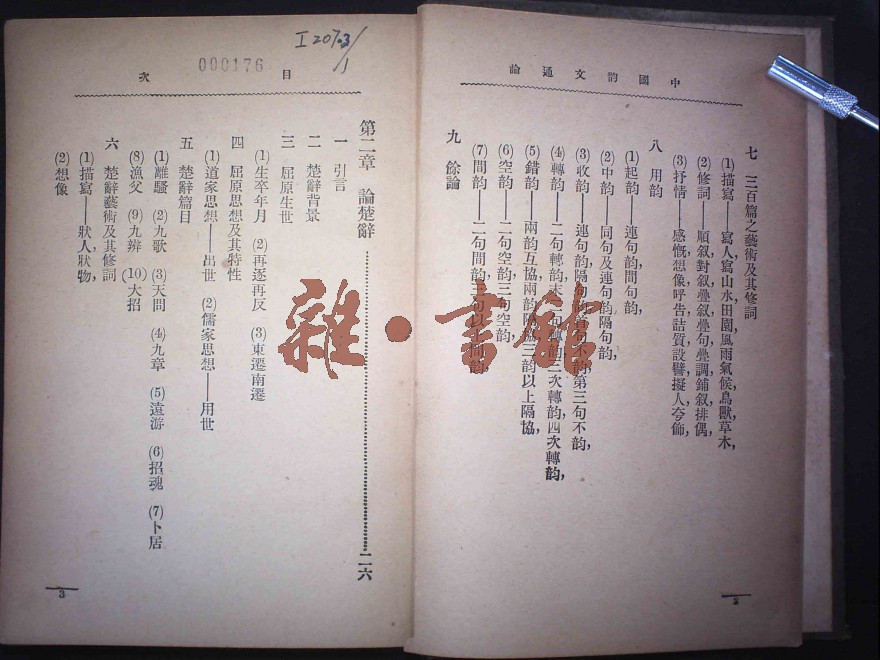 中國韵文通論
七　三百篇之藝術及其修詞
(1)描寫——寫人,寫山水,田園,風雨氣候,鳥獸草木,
(2)修詞——順叙對叙疊叙疊句疊調鋪叙排偶,
(3)抒情——感慨想像呼告詰質設譬擬人夸飾,
八　用韵
(1)起韵——連句韵間句韵,
(2)中韵——同句及連句韵隔句韵,
(3)收韵——連句韵隔句韵首句不韵,第三句不韵,
(4)轉韵——二句轉韵末句轉韵三次轉韵,四次轉韵,
(5)錯韵——兩韵互協,兩韵隔協三韵以上隔協,
(6)空韵——二句空韵三句空韵,
(7)間韵——二句間韵三句以上間韵,
九　餘論
2
目次
000176
I207.3/1
第二章　論楚辭……二六
一　引言
二　楚辭背景
三　屈原生世
(1)生卒年月　(2)再逐再反　(3)東遷南遷
四　屈原思想及其特性
(1)道家思想——出世　(2)儒家思想——用世
五　楚辭篇目
(1)離騷　(2)九歌　(3)天問　(4)九章　(5)遠游　(6)招魂　(7)卜居
(8)漁父　(9)九辨　(10)大招
六　楚辭藝術及其修詞
(1)描寫——狀人,狀物,
(2)想像
3
雜·書館